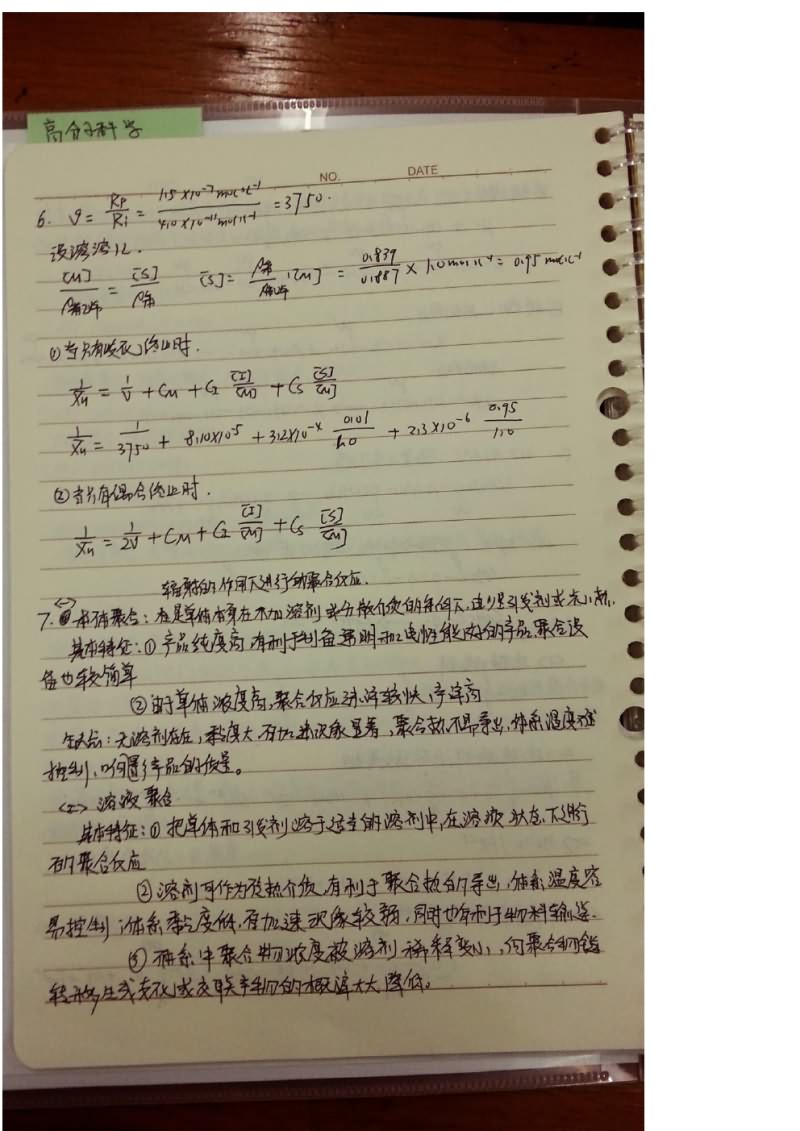 高分子科学
NO. DATE
6. ϑ = Rp/Ri = 1.5×10⁻⁷ mol·L⁻¹ / 4.0×10⁻¹¹ mol·L⁻¹ = 3750.
设溶液1L.
[M]/ρ苯乙烯 = [S]/ρ苯 [S] = ρ苯/ρ苯乙烯 ·[M] = 0.839/0.887 × 1.0 mol·L⁻¹ = 0.95 mol·L⁻¹
①当只有歧化终止时.
1/Xn = 1/V + CM + CI [I]/[M] + CS [S]/[M]
1/Xn = 1/3750 + 8.10×10⁻⁵ + 3.2×10⁻⁴ 0.01/1.0 + 2.3×10⁻⁶ 0.95/1.0
②当只有偶合终止时.
1/Xn = 1/2V + CM + CI [I]/[M] + CS [S]/[M]
辐射的作用下进行的聚合反应.
7. 本体聚合: 在是单体本身在不加溶剂或分散介质的条件下, 由少是引发剂或光、热、
基本特征: ① 产品纯度高, 有利于制备透明和电性能好的产品, 聚合设
备也较简单
② 由于单体浓度高, 聚合反应速率较快, 产率高
缺点: 无溶剂存在, 黏度大, 自加速现象显著, 聚合热不易导出, 体系温度难
控制, 影响产品的质量。
<2> 溶液聚合
基本特征: ① 把单体和引发剂溶于适当的溶剂中, 在溶液状态下进行
的聚合反应
② 溶剂可作为传热介质, 有利于聚合热的导出, 体系温度容
易控制; 体系黏度低, 自加速现象较弱, 同时也有利于物料输送.
③ 体系中聚合物浓度被溶剂稀释变小, 向聚合物链
转移生成支化或交联产物的概率大大降低。